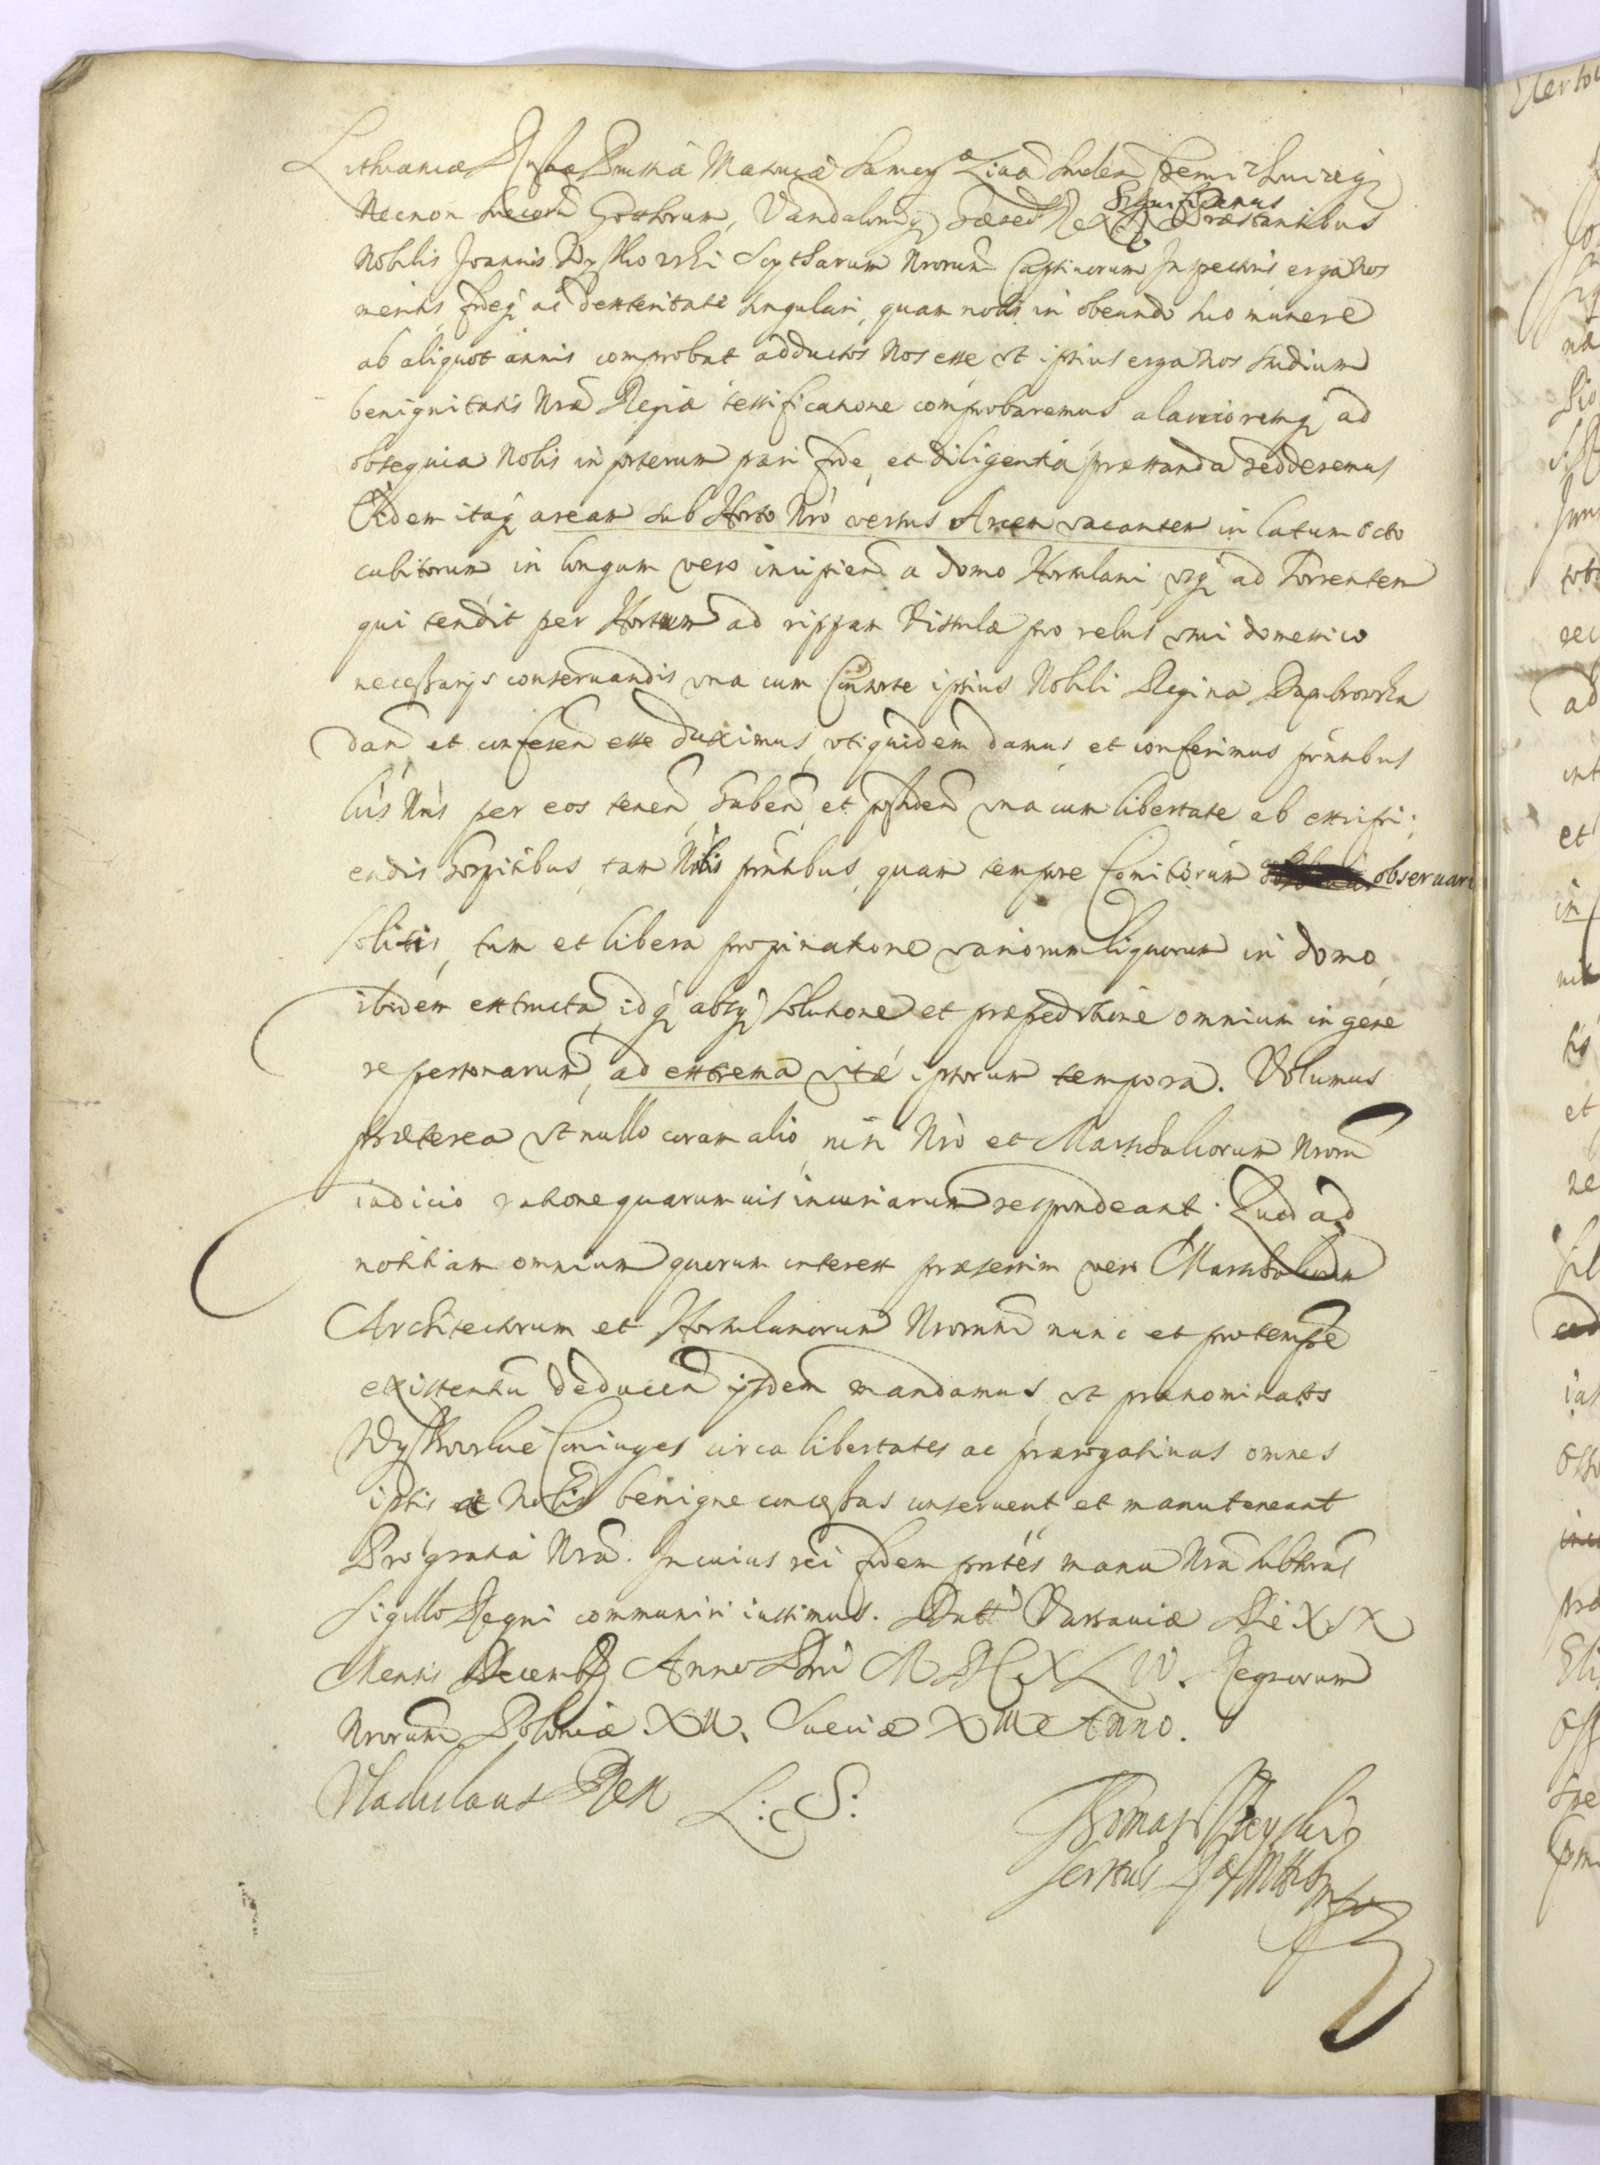 Lithuaniæ Russiæ Prussiæ Masouiæ Samog Liuoæ Smolen Czernihouieq
Necnon Suecorū Gotthorum, Vandalorumq hæred Rex Significamus Præstantibus
Nobilis Joannis Wyszkowski Scytharum Nrorum Captiuorum Inspectoris erga Nos
meritis, fideq ac dexteritate singulari, quam nobis in obeundo suo munere
ab aliquot annis comprobat adductos Nos esse ut ipsius erga Nos studium
benignitatis Nræ Regiæ testificatione comprobaremus alacrioremq ad
obsequia Nobis in posterum pari fide, et diligentia præstanda redderemus
Eidem itaq aream sub Horto Nro versus Arcem vacantem in latum octo
cubitorum in longum vero incipiend a domo Hortulani usq ad Torrentem
qui tendit per Hortum ad rippam Vistulæ pro rebus vsui domestico
necessarijs conseruandis vna cum Consorte ipsius Nobili Regina Dąmbrowska
dan et conferen esse duximus, vtiquidem damus, et conferimus pntibus
Lris Nris per eos tenen, haben, et possiden vna cum libertate ab excipi:
endis hospitibus, tam Nobis pntibus, quam tempore Comitiorum obseruari
solitis, tum et libera propinatione variorum liquorum in domo
ibidem extructa, idq absq solutione et præpeditione omnium in gene
re personarum, ad extrema vitæ ipsorum tempora. Volumus
præterea vt nullo coram alio, nisi Nro et Marschalcorum Nrorum
iudicio ratione quarumuis iniuriarum respondeant. Quod ad
notitiam omnium quorum interest præsertim vero Marschalcorum
Architectorum et Hortulanorum Nrorum nunc et pro tempore
existentiu deducen ijsdem mandamus, vt prænominatos
Wyszkowskie Coniuges circa libertates ac prærogatiuas omnes
ipsis a Nobis benigne concessas conseruent et manuteneant
Pro gratia Nra. In cuius rei fidem pntes manu Nra subscras
Sigillo Regni communiri iussimus. Datt Varsauiæ Die XIX
Mensis Decembr Anno Dni M.DC.XLIV. Regnorum
Nrorum Poloniæ XII, Sueciæ XIII Anno.
Vladislaus Rex L: S: